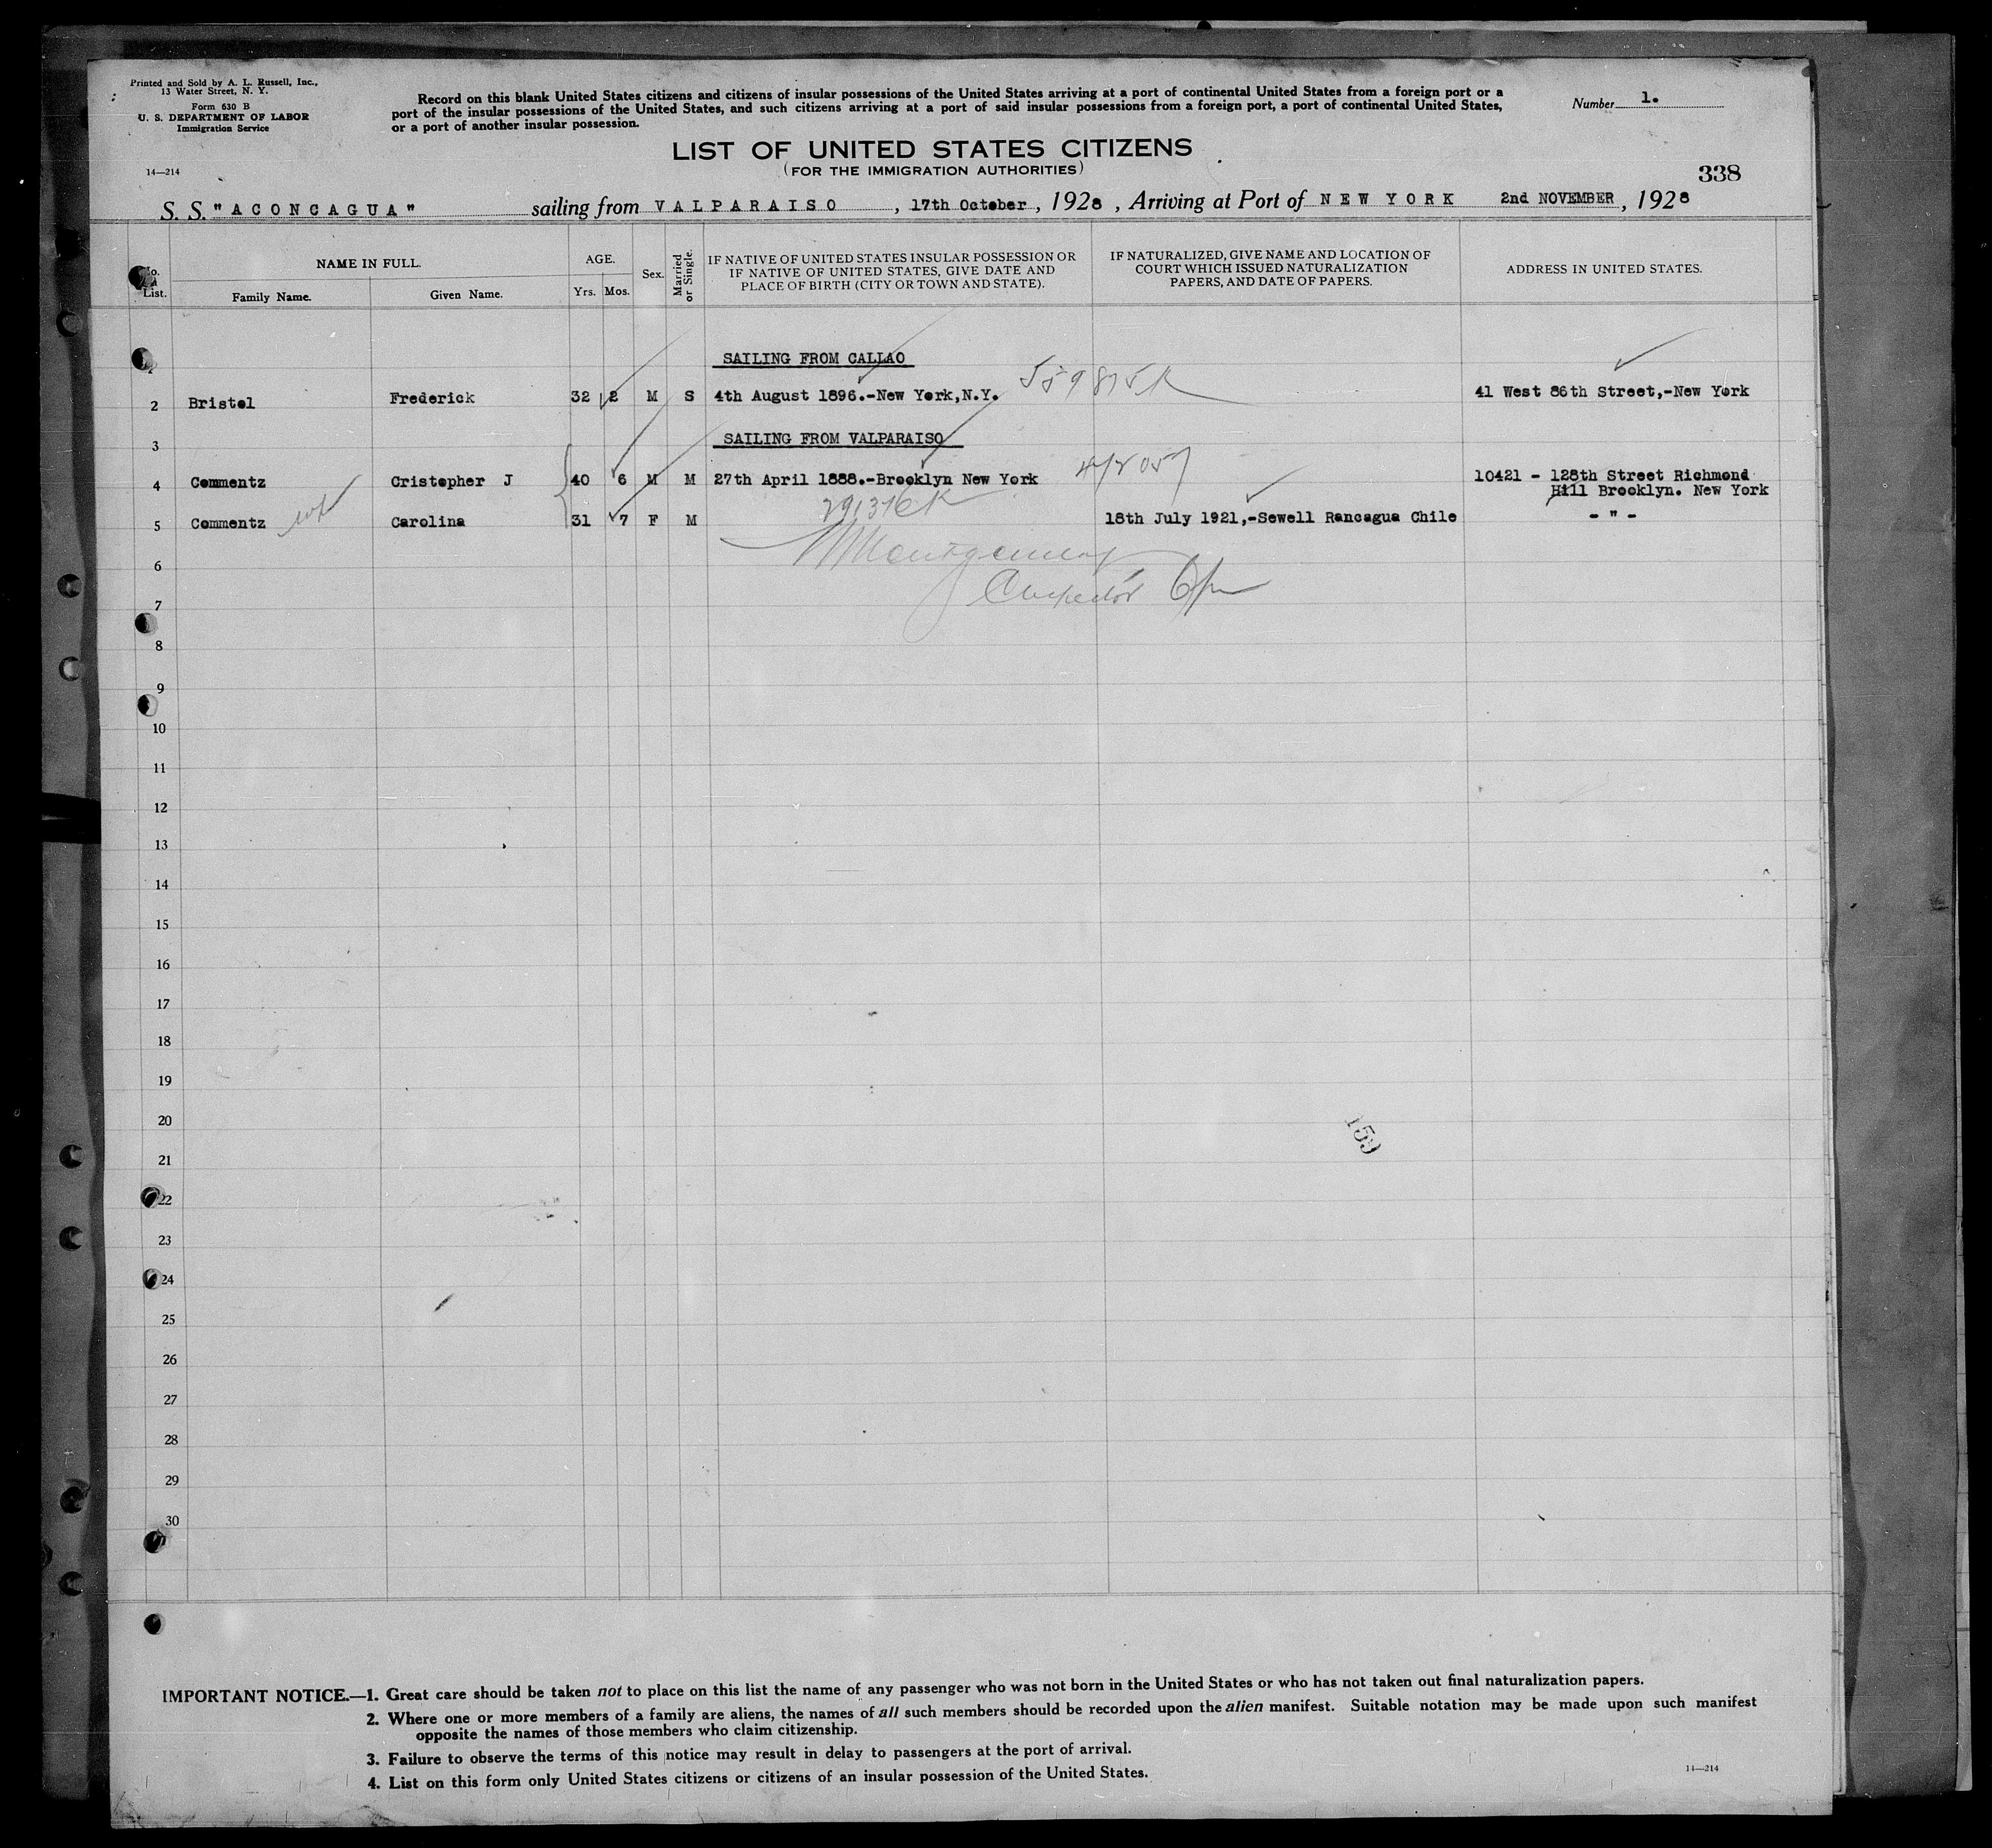 Printed and Sold by A. L. Russell, Inc.,
13 Water Street, N. Y.
Form 630 B
U. S. DEPARTMENT OF LABOR
Immigration Service
14—214
Record on this blank United States citizens and citizens of insular possessions of the United States arriving at a port of continental United States from a foreign port or a
port of the insular possessions of the United States, and such citizens arriving at a port of said insular possessions from a foreign port, a port of continental United States,
or a port of another insular possession.
Number 1.
LIST OF UNITED STATES CITIZENS
(FOR THE IMMIGRATION AUTHORITIES)
338
S. S. "ACONCAGUA" sailing from VALPARAISO, 17th October, 1928, Arriving at Port of NEW YORK 2nd NOVEMBER, 1928
No.
List.
NAME IN FULL.
Family Name.
Given Name.
AGE.
Yrs.
Mos.
Sex.
Married or Single.
IF NATIVE OF UNITED STATES INSULAR POSSESSION OR
IF NATIVE OF UNITED STATES, GIVE DATE AND
PLACE OF BIRTH (CITY OR TOWN AND STATE).
IF NATURALIZED, GIVE NAME AND LOCATION OF
COURT WHICH ISSUED NATURALIZATION
PAPERS, AND DATE OF PAPERS.
ADDRESS IN UNITED STATES.
SAILING FROM CALLAO
2 Bristol Frederick 32 2 M S 4th August 1896.-New York,N.Y. 559875 41 West 86th Street,-New York
3 SAILING FROM VALPARAISO
4 Commentz Cristopher J 40 6 M M 27th April 1888.-Brooklyn New York 10421 - 128th Street Richmond
Hill Brooklyn. New York
5 Commentz wife Carolina 31 7 F M 18th July 1921,-Sewell Rancagua Chile - " -
6 Montgomery
7 Inspector
8
9
10
11
12
13
14
15
16
17
18
19
20
159
21
22
23
24
25
26
27
28
29
30
IMPORTANT NOTICE.—1. Great care should be taken not to place on this list the name of any passenger who was not born in the United States or who has not taken out final naturalization papers.
2. Where one or more members of a family are aliens, the names of all such members should be recorded upon the alien manifest. Suitable notation may be made upon such manifest
opposite the names of those members who claim citizenship.
3. Failure to observe the terms of this notice may result in delay to passengers at the port of arrival.
4. List on this form only United States citizens or citizens of an insular possession of the United States.
14—214